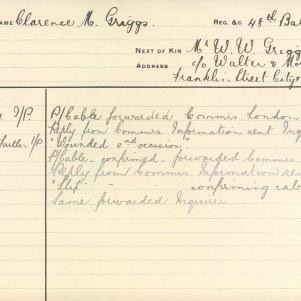 NAME Clarence M. Griggs. REG. &C 48th Bat
NEXT OF KIN Mr W. W. Griggs
ADDRESS c/o Walter & Mo
Franklin Street City
I/P. P/Cable forwarded Commrs London
Reply from Commrs Information sent Inqu
further I/P "Wounded 2nd occasion"
P/Cable confirmed forwarded Commrs.
Reply from Commrs. Information re
confirming cab
Same forwarded Inquirer.